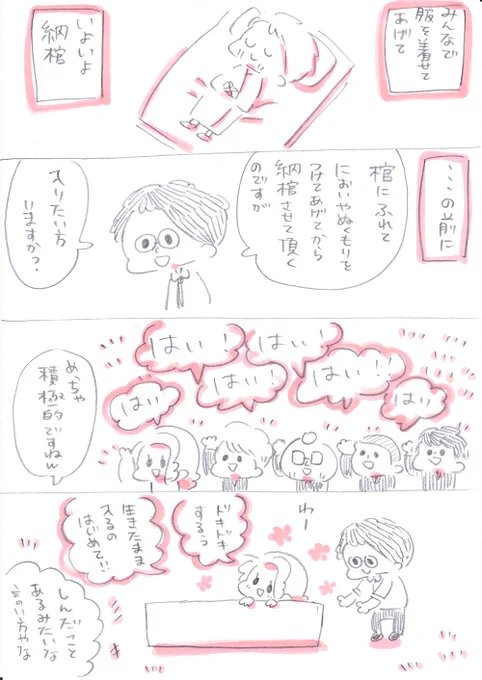 みんなで
服を着せて
あげて
いよいよ
納棺
・・・の前に
棺にふれて
においやぬくもりを
つけてあげてから
納棺させて頂く
のですが
入りたい方
いますか?
はい!
はい!
はい!
はい!!
はい
はい
めっちゃ
積極的ですねw
わー
ドキドキ
するぅ
生きたまま
入るの
はじめて!!
しんだこと
あるみたいな
言い方やな